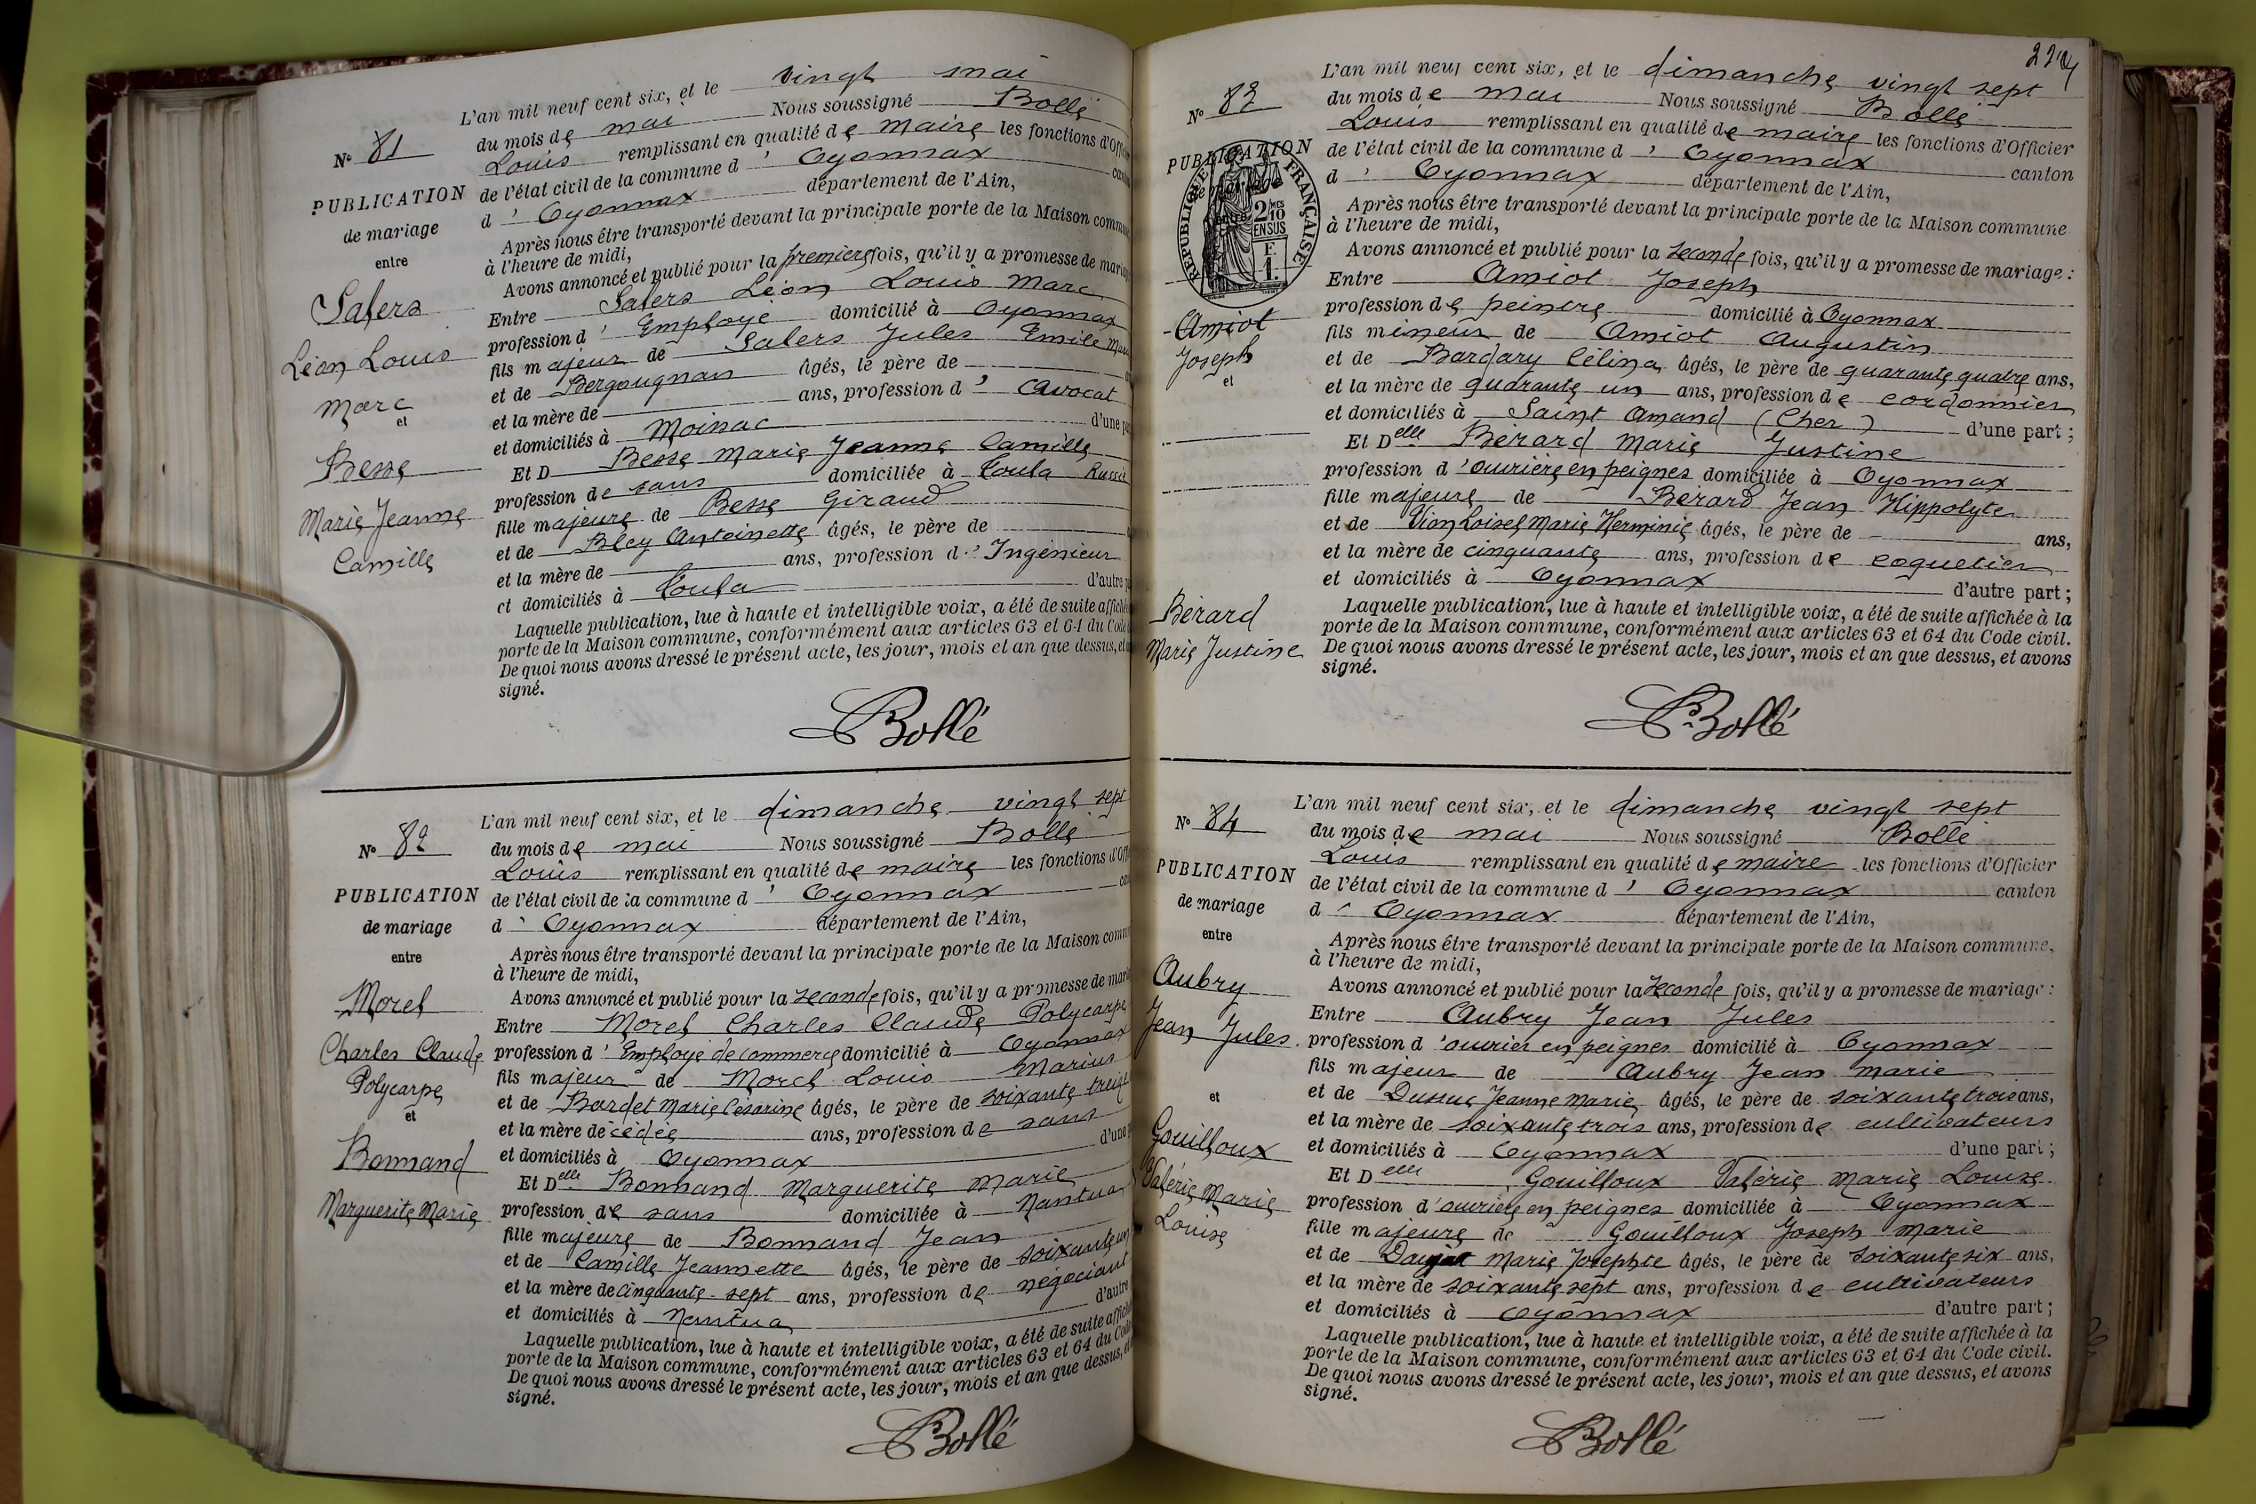 L'an mil neuf cent six, et le vingt mai
du mois de mai Nous soussigné Bollé
Louis remplissant en qualité de maire les fonctions d'Offi
de l'état civil de la commune d' Oyonnax can
d' Oyonnax département de l'Ain,
Après nous être transporté devant la principale porte de la Maison commun
à l'heure de midi,
Avons annoncé et publié pour la première fois, qu'il y a promesse de maria
Entre Salers Léon Louis Marc
profession d' Employé domicilié à Oyonnax
fils majeur de Salers Jules Emile
et de Bergougnan âgés, le père de
et la mère de ans, profession d' avocat
et domiciliés à Moissac d'une pa
Et D Besse Marie Jeanne Camille
profession de sans domiciliée à Toula Russie
fille majeure de Besse Giraud
et de Bley Antoinette âgés, le père de
et la mère de ans, profession d' Ingénieur
et domiciliés à Toula d'autre pa
Laquelle publication, lue à haute et intelligible voix, a été de suite affiché
porte de la Maison commune, conformément aux articles 63 et 64 du Code
De quoi nous avons dressé le présent acte, les jour, mois et an que dessus, et
signé.
Bollé
N° 81
PUBLICATION
de mariage
entre
Salers
Léon Louis
Marc
et
Besse
Marie Jeanne
Camille
L'an mil neuf cent six, et le dimanche vingt sept
du mois de mai Nous soussigné Bollé
Louis remplissant en qualité de maire les fonctions d'Off
de l'état civil de la commune d' Oyonnax can
d' Oyonnax département de l'Ain,
Après nous être transporté devant la principale porte de la Maison comm
à l'heure de midi,
Avons annoncé et publié pour la seconde fois, qu'il y a promesse de mari
Entre Morel Charles Claude Polycarpe
profession d' Employé de commerce domicilié à Oyonnax
fils majeur de Morel Louis Marius
et de Bardet Marie Césarine âgés, le père de soixante treize
et la mère décédée ans, profession de sans
et domiciliés à Oyonnax d'une p
Et Delle Bonnand Marguerite Marie
profession de sans domiciliée à Nantua
fille majeure de Bonnand Jean
et de Camille Jeannette âgés, le père de soixante un
et la mère de cinquante-sept ans, profession de négociant
et domiciliés à Nantua d'autre
Laquelle publication, lue à haute et intelligible voix, a été de suite affiché
porte de la Maison commune, conformément aux articles 63 et 64 du Code
De quoi nous avons dressé le présent acte, les jour, mois et an que dessus, et
signé.
Bollé
N° 82
PUBLICATION
de mariage
entre
Morel
Charles Claude
Polycarpe
et
Bonnand
Marguerite Marie
L'an mil neuf cent six, et le dimanche vingt sept
du mois de mai Nous soussigné Bollé
Louis remplissant en qualité de maire les fonctions d'Officier
de l'état civil de la commune d' Oyonnax canton
d' Oyonnax département de l'Ain,
Après nous être transporté devant la principale porte de la Maison commune
à l'heure de midi,
Avons annoncé et publié pour la seconde fois, qu'il y a promesse de mariage :
Entre Amiot Joseph
profession de peintre domicilié à Oyonnax
fils mineur de Amiot Augustin
et de Bardary Célina âgés, le père de quarante quatre ans,
et la mère de quarante un ans, profession de cordonnier
et domiciliés à Saint Amand (Cher) d'une part ;
Et Delle Bérard Marie Justine
profession d'ouvrière en peignes domiciliée à Oyonnax
fille majeure de Bérard Jean Hippolyte
et de Vion Loisel Marie Herminie âgés, le père de ans,
et la mère de cinquante ans, profession de coquetier
et domiciliés à Oyonnax d'autre part ;
Laquelle publication, lue à haute et intelligible voix, a été de suite affichée à la
porte de la Maison commune, conformément aux articles 63 et 64 du Code civil.
De quoi nous avons dressé le présent acte, les jour, mois et an que dessus, et avons
signé.
Bollé
N° 83
PUBLICATION
de mariage
entre
RÉPUBLIQUE FRANÇAISE
2/10
EN SUS
F.
1.
Amiot
Joseph
et
Bérard
Marie Justine
L'an mil neuf cent six, et le dimanche vingt sept
du mois de mai Nous soussigné Bollé
Louis remplissant en qualité de maire les fonctions d'Officier
de l'état civil de la commune d' Oyonnax canton
d' Oyonnax département de l'Ain,
Après nous être transporté devant la principale porte de la Maison commune,
à l'heure de midi,
Avons annoncé et publié pour la seconde fois, qu'il y a promesse de mariage :
Entre Aubry Jean Jules
profession d'ouvrier en peignes domicilié à Oyonnax
fils majeur de Aubry Jean Marie
et de Jeanne Marie âgés, le père de soixante trois ans,
et la mère de soixante trois ans, profession de cultivateurs
et domiciliés à Oyonnax d'une part ;
Et Delle Gouilloux Valérie Marie Louise
profession d'ouvrière en peignes domiciliée à Oyonnax
fille majeure de Gouilloux Joseph Marie
et de Marie Josephte âgés, le père de soixante six ans,
et la mère de soixante sept ans, profession de cultivateurs
et domiciliés à Oyonnax d'autre part ;
Laquelle publication, lue à haute et intelligible voix, a été de suite affichée à la
porte de la Maison commune, conformément aux articles 63 et 64 du Code civil.
De quoi nous avons dressé le présent acte, les jour, mois et an que dessus, et avons
signé.
Bollé
N° 84
PUBLICATION
de mariage
entre
Aubry
Jean Jules
et
Gouilloux
Valérie Marie
Louise